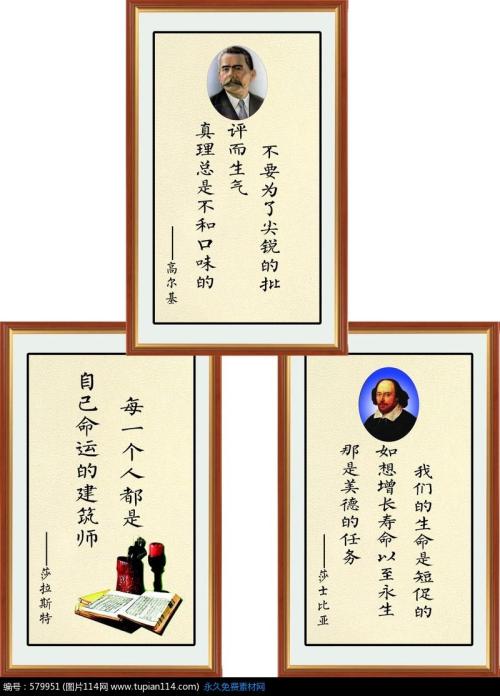 不要为了尖锐的批
评而生气
真理总是不和口味的
——高尔基
每一个人都是
自己命运的建筑师
——莎拉斯特
我们的生命是短促的
如想增长寿命以至永生
那是美德的任务
——莎士比亚
编号：579951 (图片114网 www.tupian114.com) 永久免费素材网